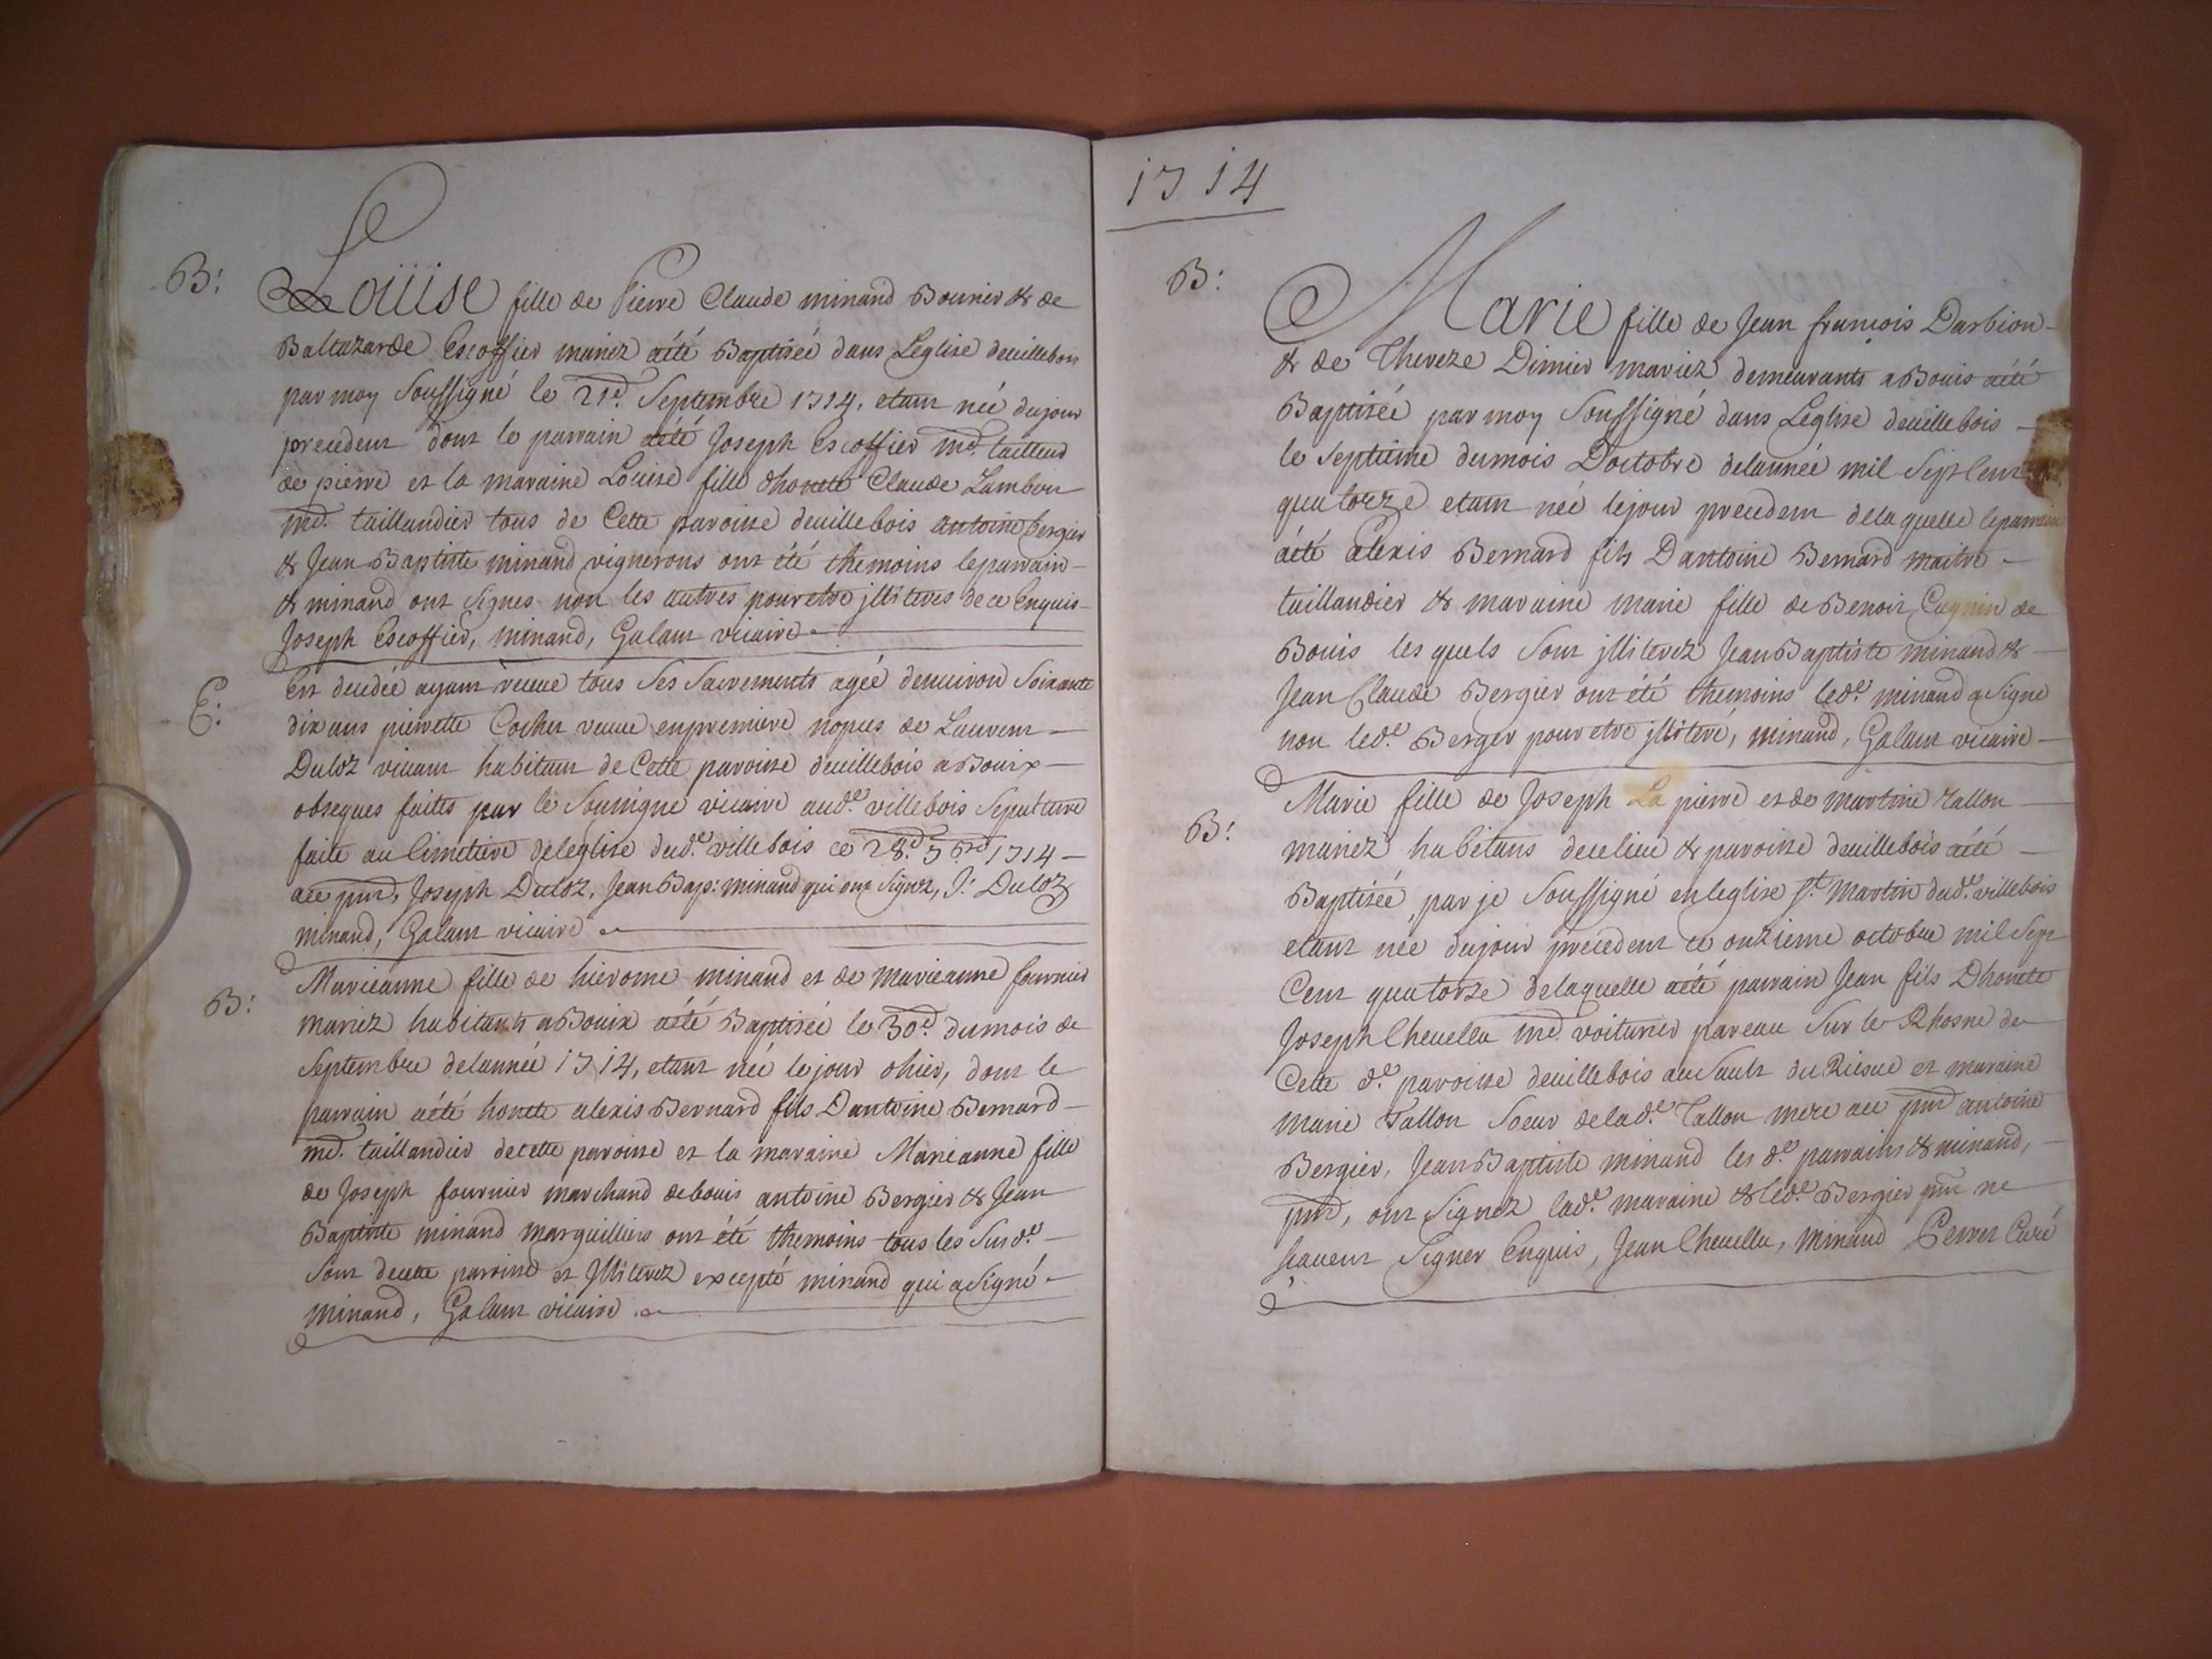 B:
Loüise fille de Pierre Claude minand Bouvier & de
Baltazarde Escoffier mariez aété Baptisée dans Leglise deuillebois
par moy Soussigné le 21.e Septembre 1714. etant née dujour
precedent dont le parrain aété Joseph Escoffier md. tailleur
de pierre et la maraine Loüise fille dhonete Claude
md. taillandier tous de Cette paroisse deuillebois antoine bergier
& Jean Baptiste minand vignerons ont été themoins leparrain
& minand ont signes non les autres pour etre jlliteres de ce Enquis
Joseph Escoffier, minand, Galant vicaire
E:
Est decedée ayant receue tous Ses Sacrements agée denuiron Soixante
dix ans pierrette veuue enpremiere nopces de Laurent
Duloz viuant habitant de Cette paroisse deuillebois a Bouix
obseques faites par le Soussigné vicaire aud.t villebois Sepulture
faite au Cimetiere deleglise dud.t villebois ce 28.e 7bre 1714
Joseph Duloz, Jean Bap: minand qui ont Signez, J: Duloz
minand, Galant vicaire
B:
Marieanne fille de hierome minand et de marieanne fournier
mariez habitants a Bouix aété Baptisée le 30.e dumois de
Septembre delannée 1714, etant née lejour dhier, dont le
parrain aété honete alexis Bernard fils Dantoine Bernard
md. taillandier decette paroisse et la maraine Marieanne fille
de Joseph fournier marchand de bouis antoine Bergier & Jean
Baptiste minand marguilliers ont été themoins tous les Susd.ts
Sont decette paroisse et Jlliterez excepté minand qui a Signé
minand, Galant vicaire
1714
B:
Marie fille de Jean françois Darbion
& de Thereze Dimier mariez demeurants a Bouis aété
Baptisée par moy Soussigné dans Léglise deuillebois
le Septieme dumois Doctobre delannée mil Sept Cent
quatorze etant née lejour precedent delaquelle leparrain
aété alexis Bernard fils Dantoine Bernard maitre
taillandier & maraine marie fille de Benoit Cagnin de
Bouis lesquels Sont jlliterez Jean Baptiste minand &
Jean Claude Bergier ont été themoins led.t minand a Signé
non led.t Berger pour etre jlliteré, minand, Galant vicaire
B:
Marie fille de Joseph La pierre et de martine tallon
mariez habitans decelieu & paroisse deuillebois aété
Baptisée, par je Soussigné enleglise S.t Martin dud.t villebois
etant née dujour precedent ce onzieme octobre mil Sept
Cent quatorze delaquelle aété parrain Jean fils Dhonete
Joseph Cheuellu md. voiturier pareau Sur le Rhosne de
Cette d.te paroisse deuillebois au Sault du et maraine
marie Tallon Soeur delad.te Tallon mere antoine
Bergier, Jean Baptiste minand les d.ts parrains & minand,
ont Signez lad.te maraine & led.t Bergier ne
scauent Signer Enquis, Jean Cheuellu, minand Perret Curé